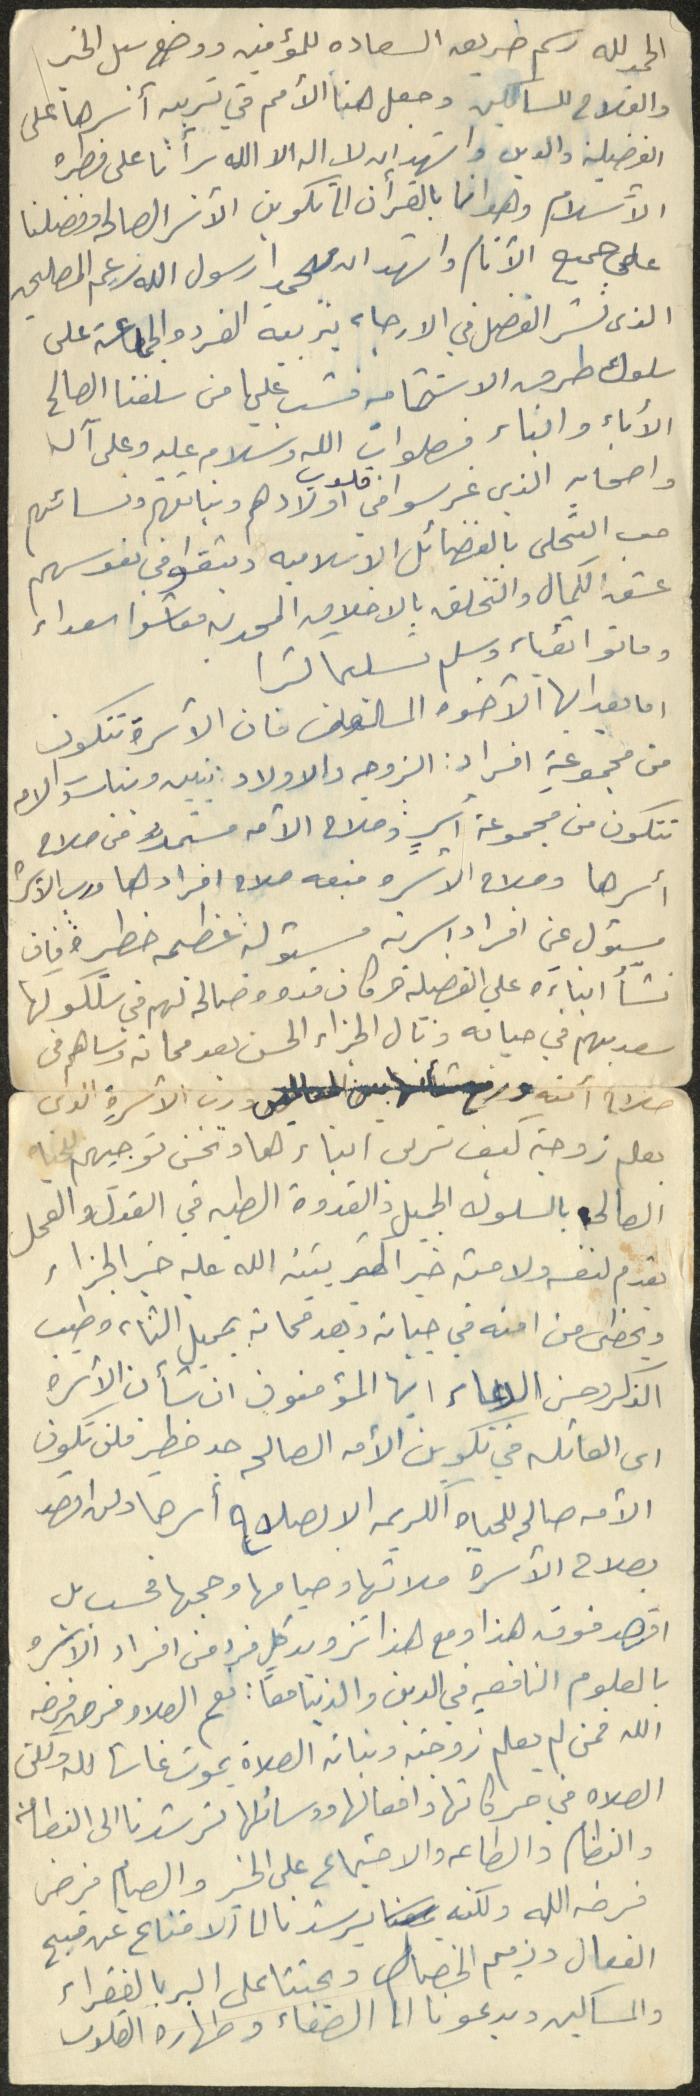 الحمد لله رسم طريق السعاده للمؤمنين ووضع سبل الخير
والفلاح للسالكين وجعل هناء الأمم في تربيه أسرها على
الفضيلة والدين واشهد ان لا اله الا الله برأنا على فطرة
الأسلام وهدانا بالقرأن الى تكوين الأسر الصالحه وفضلنا
على جميع الأنام واشهد ان محمدا رسول الله زعيم المصلحين
الذى نشر الفضل في الارجاء بتربية الفرد والجماعة على
سلوك طرق الاستقامه فشب عليها من سلفنا الصالح
الأباء والابناء فصلوات الله وسلامه عليه وعلى آله
واصحابه الذين غرسوا في قلوب اولادهم وبناتهم ونسائهم
حب التحلى بالفضائل الاسلاميه وبثوا في نفوسهم
عشق الكمال والتخلق بالاخلاق المحمديه فعاشوا سعداء
وماتوا اتقياء وسلم تسليما كثيرا
اما بعد ايها الأخوه المسلمون فان الأسرة تتكون
من مجموعة افراد: الزوجه والاولاد: بنين وبنات والامه
تتكون من مجموعة أسر وصلاح الأمه مستمد من صلاح
أسرها وصلاح الاسره منبعه صلاح افرادها ورب الاسرة
مسئول عن افراد اسرته مسئولية عظيمه خطيرة فإن
نشأ ابناءه على الفضيلة فكان قدوه صالحة لهم في سلوكها
سعد بهم في حياته ونال الجزاء الحسن بعد مماته وساهم في
صلاح أمته ورب الأسرة الذى
يعلم زوجته كيف تربى ابناءها وتحسن توجيههم للحياه
الصالحه بالسلوك الجميل والقدوة الطيبه في القول والعمل
يقدم لنفسه ولامته خيرا كثيرا يثيبه الله عليه خير الجزاء
ويحظى من امته في حياته وبعد مماته بجميل الثناء وطيب
الذكر وحسن الدعاء ايها المؤمنون ان شأن الأسرة
اى العائله في تكوين الأمه الصالحه جد خطير فلن تكون
الأمه صالحه للحياه الكريمه الا بصلاح أسرها ولن اقصد
بصلاح الأسرة صلاتها وصيامها وحجها فحسب بل
اقصد فوق هذا ومع هذا تزويد كل فرد من افراد الأسره
بالعلوم النافعه في الدين والدنيا معا: نعم الصلاه فرض فرضه
الله فمن لم يعلم زوجته وبناته الصلاة يموت غاشا لله ولكن
الصلاه في حركاتها وافعالها ووسائلها ترشدنا الى النظافة
والنظام والطاعه والاجتماع على الخير والصيام فرض
فرضه الله ولكنه يرشدنا الى الامتناع عن قبيح
الفعال وذميم الخصال ويحثنا على البر بالفقراء
والمساكين ويدعونا الى الصفاء وطهارة القلوب